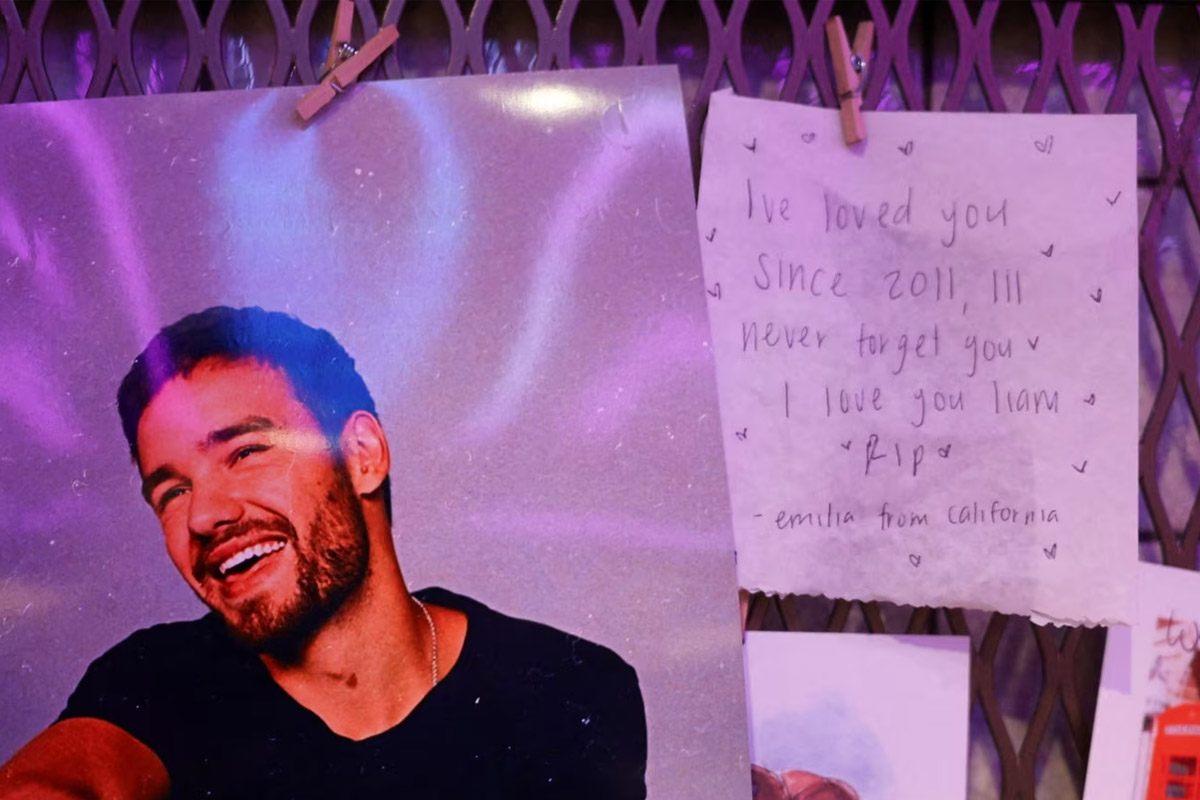 Ive loved you
Since 2011, Ill
never forget you
I love you liam
Rip
- emilia from California